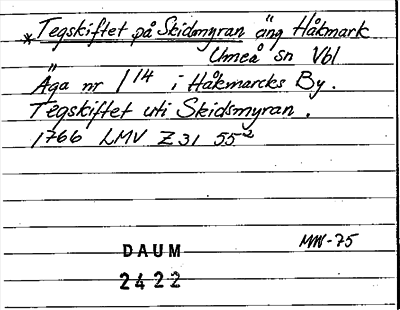 *Tegskiftet på Skidmyran äng Håkmark
Umeå sn Vbl
Äga nr 114 i Håkmarcks By.
Tegskiftet uti Skidsmyran.
1766 LMV Z31 55²
MW-75
DAUM
2422